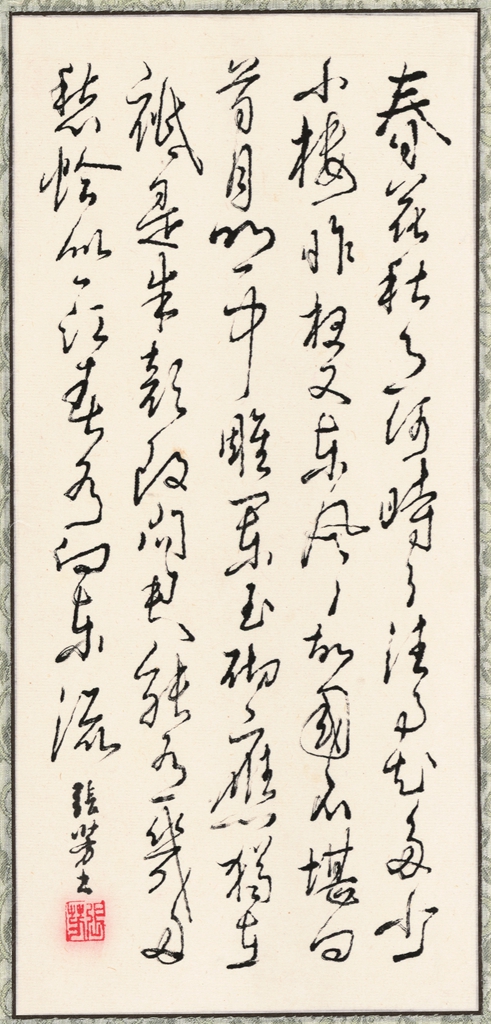 春花秋月何時了往事知多少
小樓昨夜又東風故國不堪回
首月明中雕闌玉砌應猶在
祗是朱顏改問君能有幾多
愁恰似一江春水向東流
張